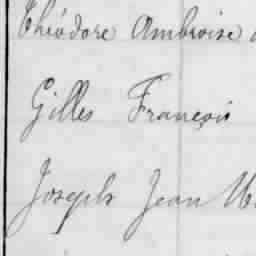 Théodore Ambroise
Gilles François
Joseph Jean